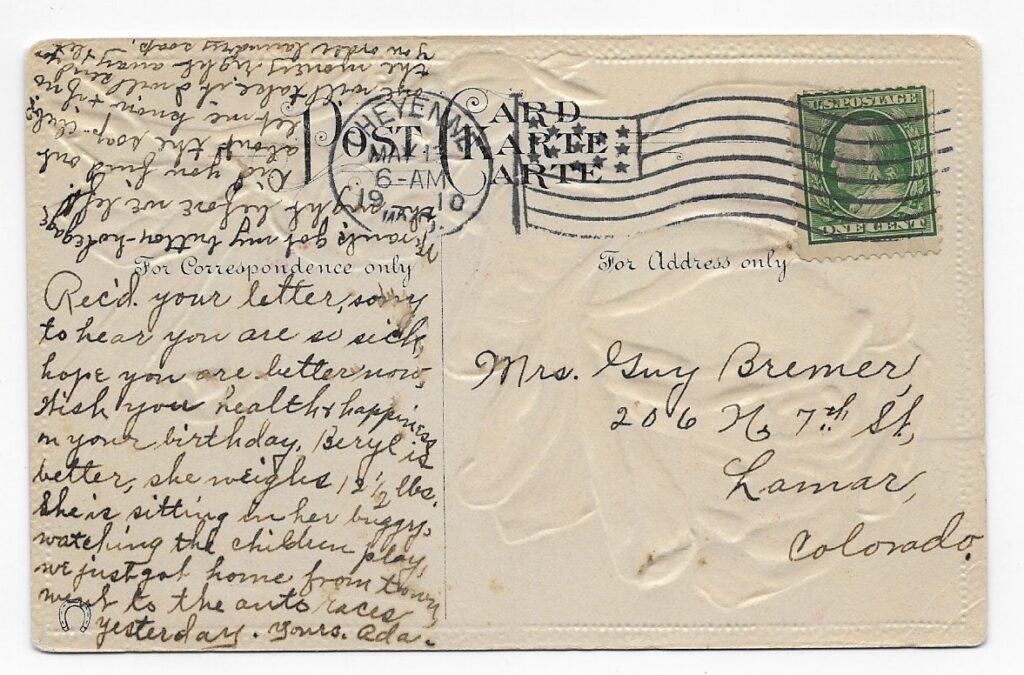 POST CARD
KARTE
CARTE
CHEYENNE
MAY 1
6-AM
1910
WYO.
U.S. POSTAGE
ONE CENT
For Correspondence only
For Address only
Rec'd. your letter, sorry
to hear you are so sick,
hope you are better now,
Wish you health & happiness
on your birthday, Beryl is
better, she weighs 12 1/2 lbs.
She is sitting in her buggy,
watching the children play,
we just got home from town,
went to the auto races
yesterday. Yours. Ada.
got my button-hole
night before we left
Did you find out
about the soap "club"
let me know + if no
will take it I will send
the money right away + let
you order laundry soap,
Mrs. Guy Bremer,
206 N. 7th St,
Lamar,
Colorado.